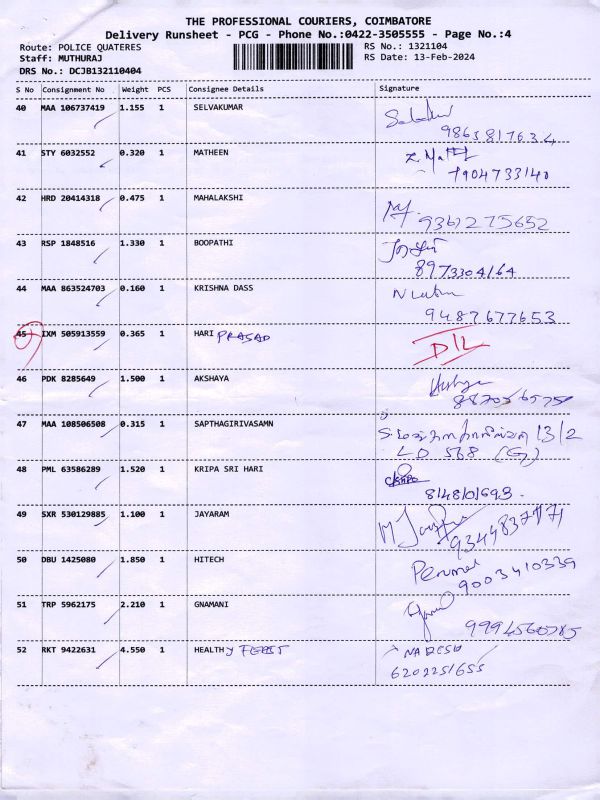 THE PROFESSIONAL COURIERS, COIMBATORE
Delivery Runsheet - PCG - Phone No.:0422-3505555 - Page No.:4
Route: POLICE QUATERES RS No.: 1321104
Staff: MUTHURAJ RS Date: 13-Feb-2024
DRS No.: DCJB132110404
S No Consignment No Weight PCS Consignee Details Signature
40 MAA 106737419 1.155 1 SELVAKUMAR
9865817634
41 STY 6032552 0.320 1 MATHEEN
7904733140
42 HRD 20414318 0.475 1 MAHALAKSHI
9361275652
43 RSP 1848516 1.330 1 BOOPATHI
8973304164
44 MAA 863524703 0.160 1 KRISHNA DASS
9487677653
45 IXM 505913559 0.365 1 HARI PRASAD D/L
46 PDK 8285649 1.500 1 AKSHAYA
47 MAA 108506508 0.315 1 SAPTHAGIRIVASAMN 13/2
LD 568 (G)
48 PML 63586289 1.520 1 KRIPA SRI HARI
8148101693
49 SXR 530129885 1.100 1 JAYARAM
50 DBU 1425080 1.850 1 HITECH Perumal
9003410339
51 TRP 5962175 2.210 1 GNAMANI
52 RKT 9422631 4.550 1 HEALTHY FEAST NARESH
6202251655